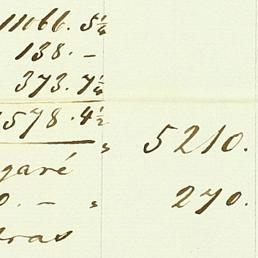 11066. 5¼
138. –
373. 7¼
1578. 4½
" 5210.
garé
0. – " 270.
dras